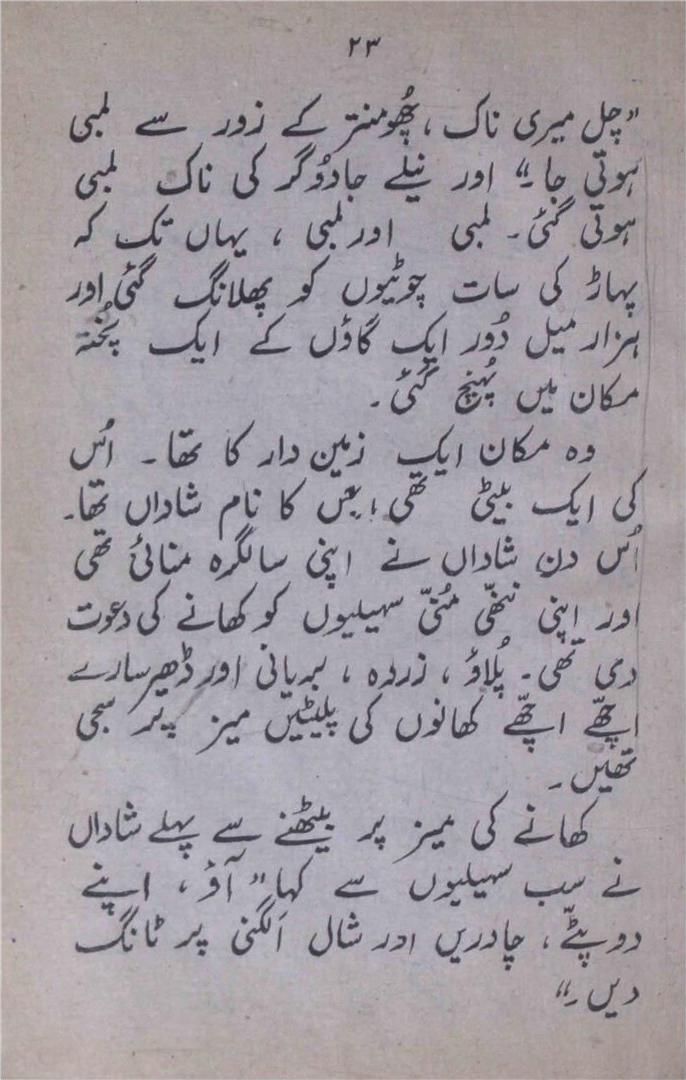 ۲۳
”چل میری ناک ، پھُومنتر کے زور سے لمبی
ہوتی جا۔“ اور نیلے جادُوگر کی ناک لمبی
ہوتی گئی۔ لمبی اور لمبی ، یہاں تک کہ
پہاڑ کی سات چوٹیوں کو پھلانگ گئی اور
ہزار میل دُور ایک گاؤں کے ایک پُختہ
مکان میں پُہنچ گئی۔
وہ مکان ایک زمین دار کا تھا۔ اُس
کی ایک بیٹی تھی، جس کا نام شاداں تھا۔
اُس دن شاداں نے اپنی سالگرہ منائی تھی
اور اپنی ننھّی مُنّی سہیلیوں کو کھانے کی دعوت
دی تھی۔ پُلاؤ ، زردہ ، بریانی اور ڈھیر سارے
اچھّے اچھّے کھانوں کی پلیٹیں میز پر سجی
تھیں۔
کھانے کی میز پر بیٹھنے سے پہلے شاداں
نے سب سہیلیوں سے کہا ”آؤ ، اپنے
دوپٹّے ، چادریں اور شال اَلگنی پر ٹانگ
دیں۔“